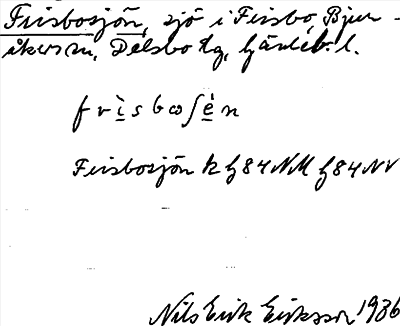 Frisbosjön, sjö i Frisbo, Bjur-
åkers sn, Delsbo tg, Gävleb. l.
frìsbωʃèn
Frisbosjön k G84NM G84NV
Nils Erik Eriksson 1936